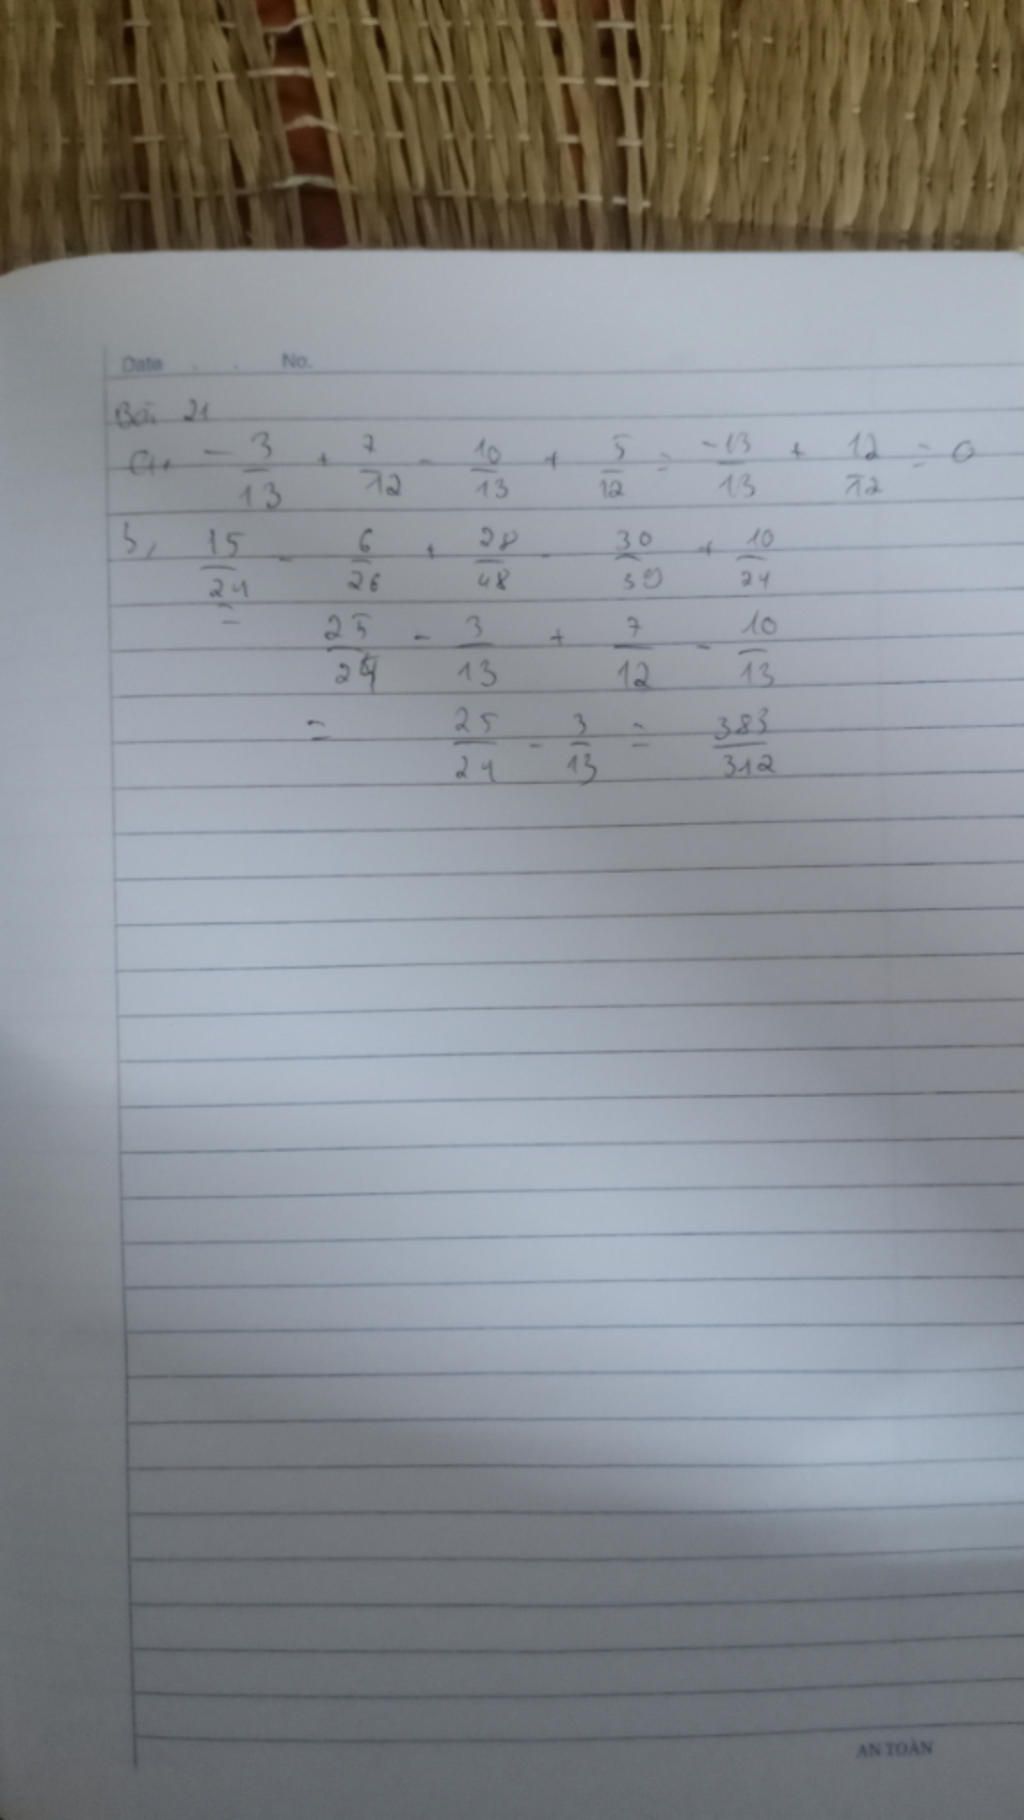 Date . . No.
Bài 21
a, - 3/13 + 7/12 - 10/13 + 5/12 = -13/13 + 12/12 = 0
b, 15/24 - 6/26 + 28/48 - 30/39 + 10/24
= 25/24 - 3/13 + 7/12 - 10/13
= 25/24 - 3/13 = 383/312
AN TOÀN